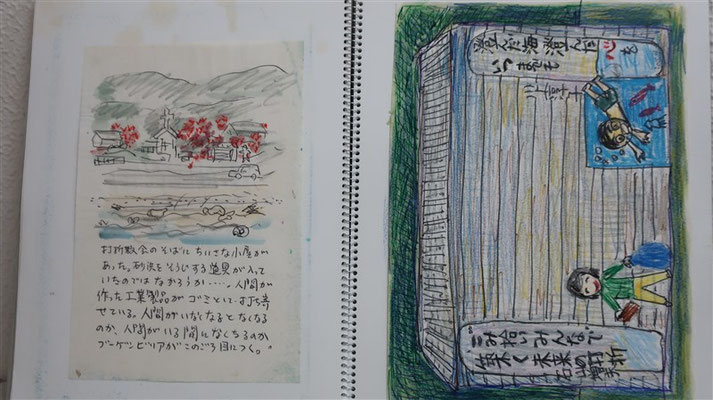 打折教会のそばにちいさな小屋が
あった。砂浜をそうじする道具が入って
いたのではなかろうか……。人間が
作った工業製品がゴミとして打ち寄
せている。人間がいなくなるとなくなる
のか、人間がいる間になくなるのか
ブーゲンビリアがこのごろ目につく。
澄んだ海 澄んだ心を
いつまでも
ごみ拾いみんなで
築く未来の打折